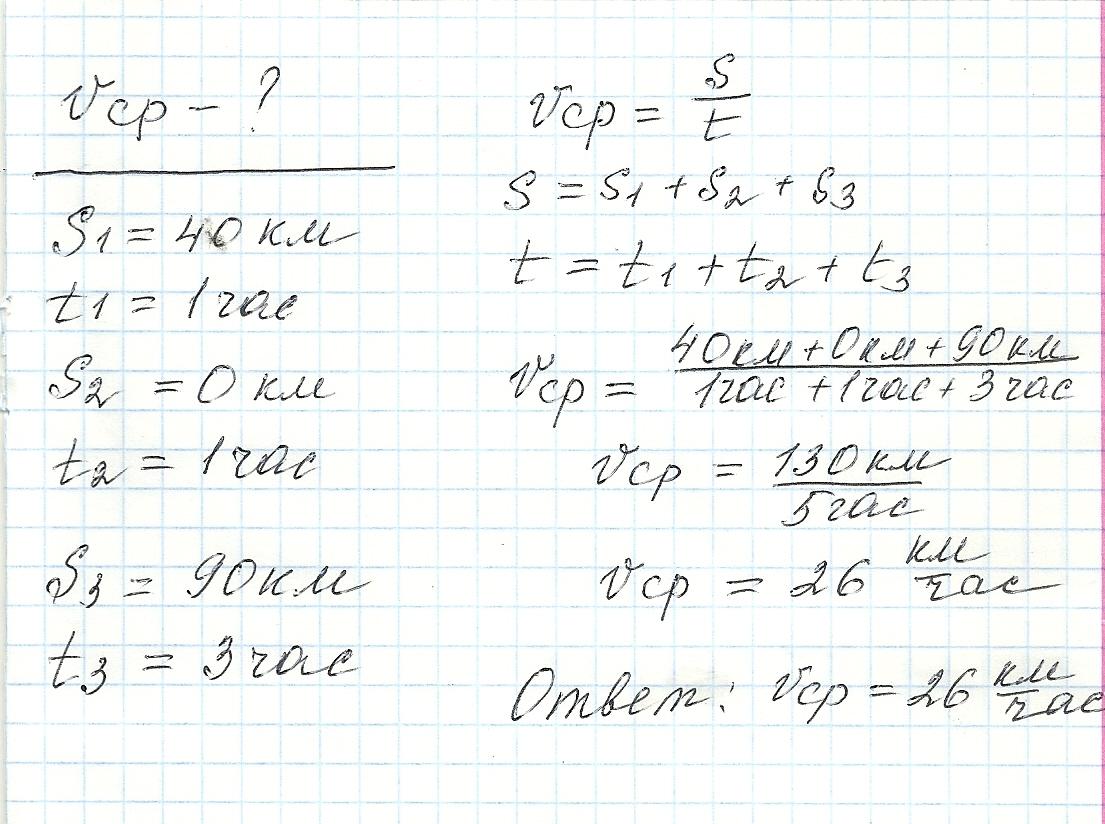 Vср - ?
S1 = 40 км
t1 = 1 час
S2 = 0 км
t2 = 1 час
S3 = 90 км
t3 = 3 час
Vср = S/t
S = S1 + S2 + S3
t = t1 + t2 + t3
Vср = 40км + 0км + 90км / 1час + 1час + 3час
Vср = 130км / 5час
Vср = 26 км/час
Ответ: Vср = 26 км/час